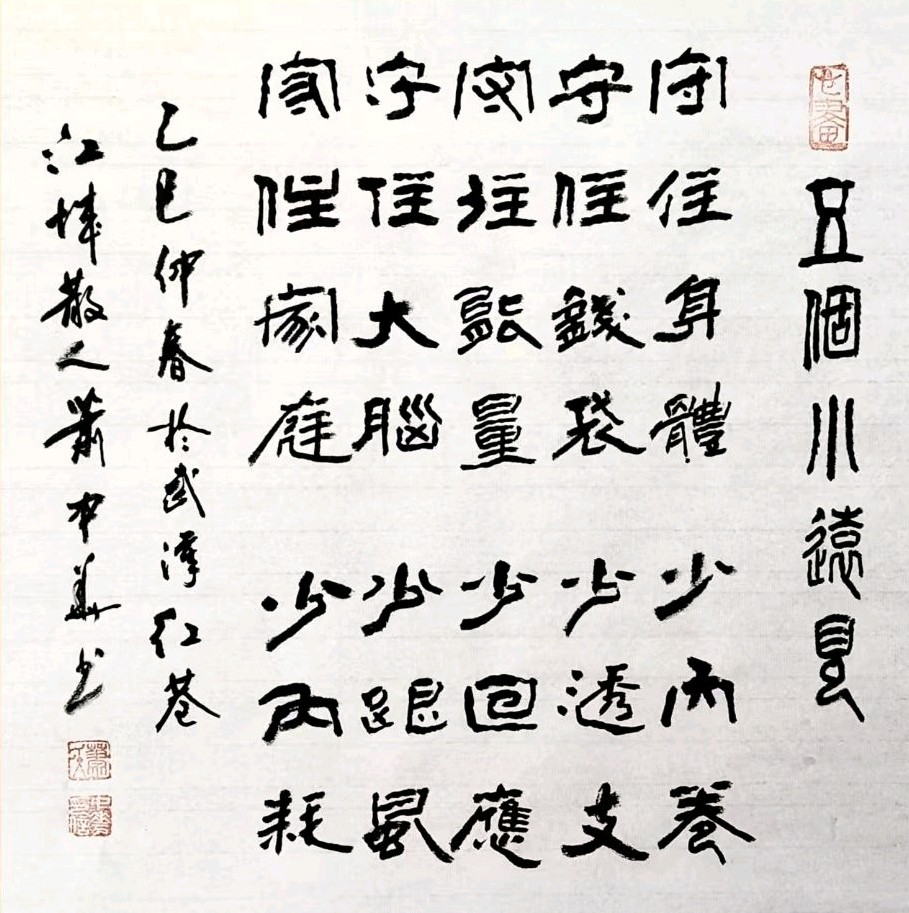 五個小遠見
守住身體 少內卷
守住錢袋 少透支
守住能量 少回應
守住大腦 少跟風
守住家庭 少內耗
乙巳仲春於武漢红巷
江城散人蕭中華书